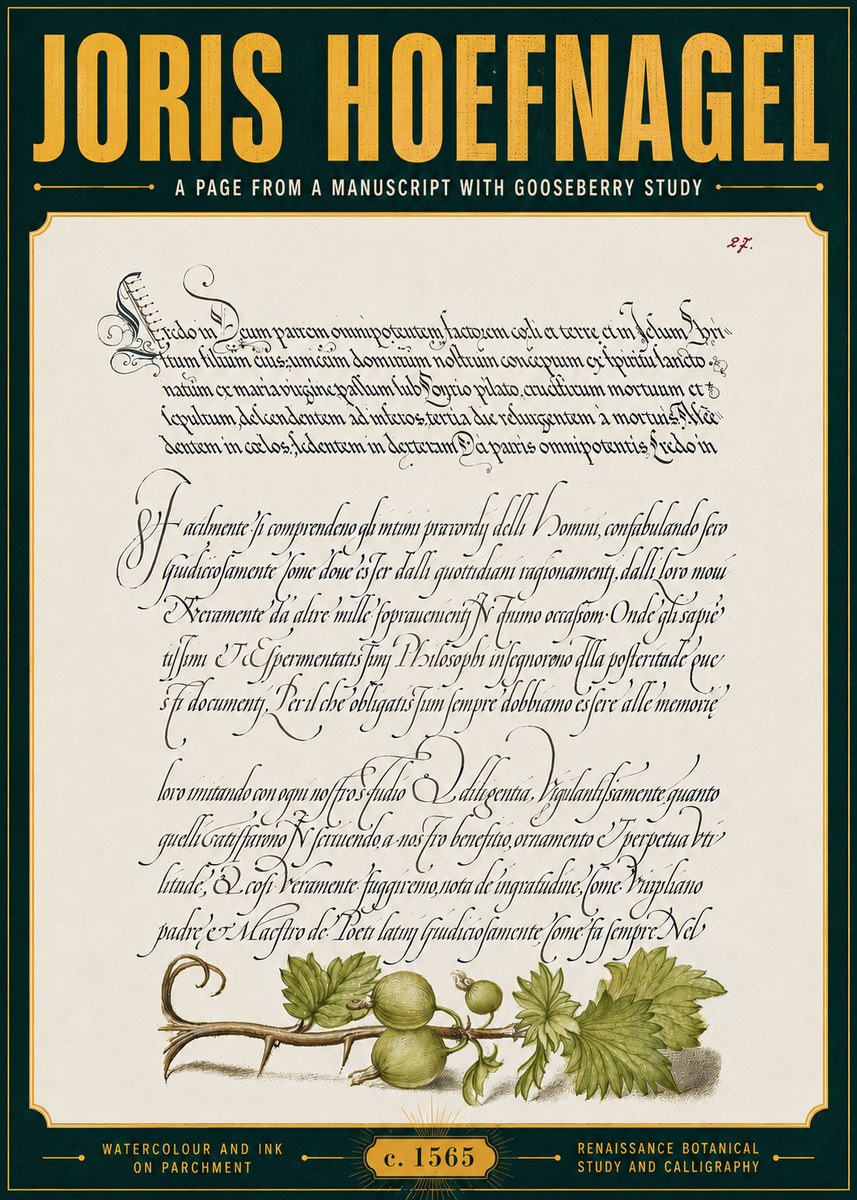 JORIS HOEFNAGEL
A PAGE FROM A MANUSCRIPT WITH GOOSEBERRY STUDY
27.
Credo in Deum patrem omnipotentem factorem cœli et terre, et in Jesum Chri
stum filium eius, unicum dominum nostrum conceptum ex spiritu sancto
natum ex maria virgine passum sub Pontio pilato, crucifixum mortuum et
sepultum, descendentem ad inferos, tertia die resurgentem à mortuis. Asce
dentem in cœlos, sedentem in dexteram Dei patris omnipotentis, Credo in
Facilmente si comprendeno gli intimi precordij delli Homini, confabulando sero
Giudiciosamente come dove esser dalli quottidiani ragionamenti, dalli loro moui
Overamente da altre mille sopravenienti IN animo occasiom. Onde gli sapie
tissimi ET Esperimentatissimj Philosophi insegnoreno alla posteritade que
sti documentj, Per il che obligatissium sempre dobbiamo essere alle memorie
loro imitando con ogni nostro studio & diligentia, Vigilantissamente quanto
quelli satisfarono IN scrivendo, a nostro benefitio, ornamento & perpetua vti
litude, & cosi veramente fuggiremo, nota de ingratudine, come Virgiliano
padre, & Maestro de Poeti latinj Giudiciosamente, come fa sempre Nel
WATERCOLOUR AND INK
ON PARCHMENT
c. 1565
RENAISSANCE BOTANICAL
STUDY AND CALLIGRAPHY